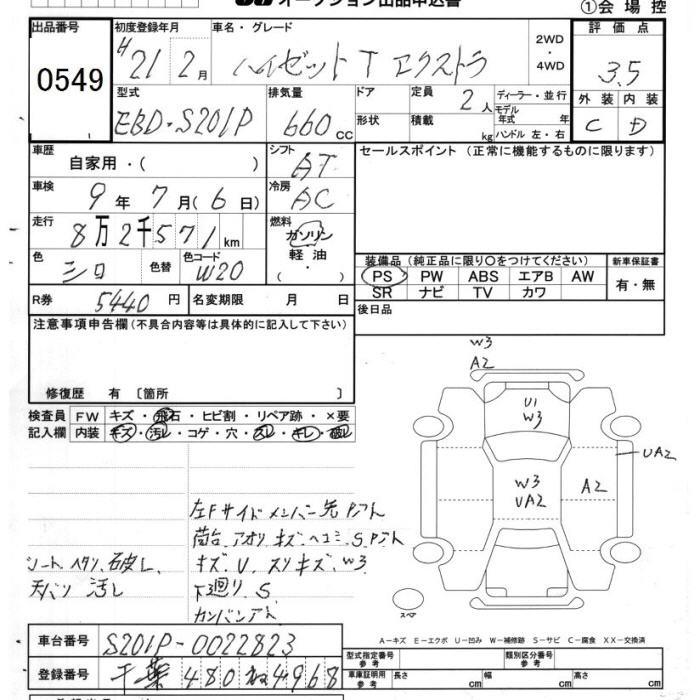 オークション出品申込書
①会場控
出品番号 0549
初度登録年月 H21年2月
車名・グレード ハイゼット T エクストラ
2WD・4WD
評価点 3.5
外装 C 内装 D
型式 EBD-S201P
排気量 660 cc
ドア 形状
定員 2人
積載 kg
ディーラー・並行
モデル年式 年
ハンドル 左・右
車歴 自家用・( )
シフト AT
セールスポイント (正常に機能するものに限ります)
車検 9年7月(6日)
冷房 AC
走行 8万2千571km
燃料 ガソリン 軽油・( )
色 シロ 色替 色コード W20
装備品 (純正品に限り○をつけてください)
PS PW ABS エアB AW
SR ナビ TV カワ
新車保証書 有・無
R券 5440円 名変期限 月 日
後日品
注意事項申告欄(不具合内容等は具体的に記入して下さい)
修復歴 有 〔箇所 〕
検査員 FW キズ・飛石・ヒビ割・リペア跡・×要
記入欄 内装 キズ・汚レ・コゲ・穴・スレ・キレ・破レ
W3
A2
U1
W3
UA2
W3
UA2
A2
左Fサイドメンバー先Pアト
荷台、アオリ キズ、ヘコミ、S、Pアト
キズ、U、スリキズ、W3
下廻り、S
カンバンアト
シートヘタリ、破レ、
天バリ 汚レ
スペア
A-キズ E-エクボ U-凹み W-補修跡 S-サビ C-腐食 XX-交換済
車台番号 S201P-0022823
登録番号 千葉 480 ね 4968
型式指定番号 参考 類別区分番号 参考
車庫証明用 参考 長さ cm 幅 cm 高さ cm